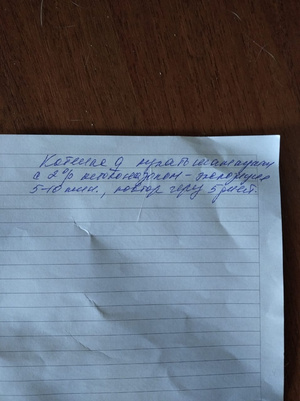 Котенка д мыть шампунем
с 2% кетоконазолом - экспозиция
5-10 мин., повтор через 5 дней.